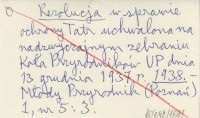 Rezolucja w sprawie
ochrony Tatr uchwalona na
nadzwyczajnym zebraniu
Koła Przyrodników UP dnia
13 grudnia 1937 r. 1938. –
Młody Przyrodnik (Poznań)
1, nr 5 : 3.